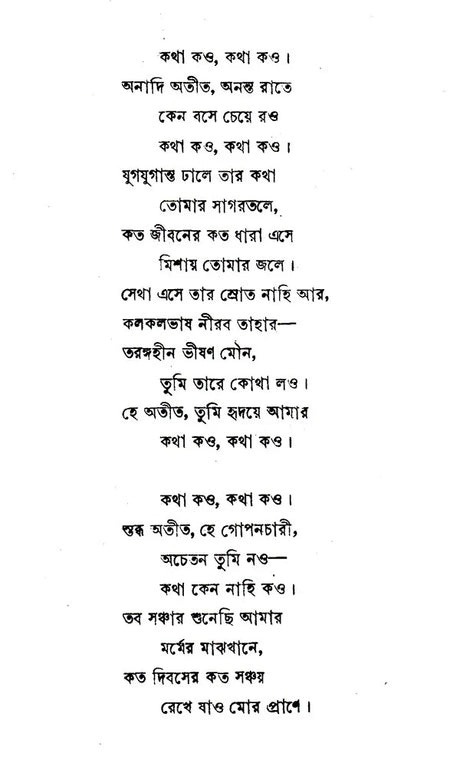 কথা কও, কথা কও।
অনাদি অতীত, অনন্ত রাতে
কেন বসে চেয়ে রও
কথা কও, কথা কও।
যুগযুগান্ত ঢালে তার কথা
তোমার সাগরতলে,
কত জীবনের কত ধারা এসে
মিশায় তোমার জলে।
সেথা এসে তার স্রোত নাহি আর,
কলকলভাষ নীরব তাহার—
তরঙ্গহীন ভীষণ মৌন,
তুমি তারে কোথা লও।
হে অতীত, তুমি হৃদয়ে আমার
কথা কও, কথা কও।

কথা কও, কথা কও।
স্তব্ধ অতীত, হে গোপনচারী,
অচেতন তুমি নও—
কথা কেন নাহি কও।
তব সঞ্চার শুনেছি আমার
মর্মের মাঝখানে,
কত দিবসের কত সঞ্চয়
রেখে যাও মোর প্রাণে।